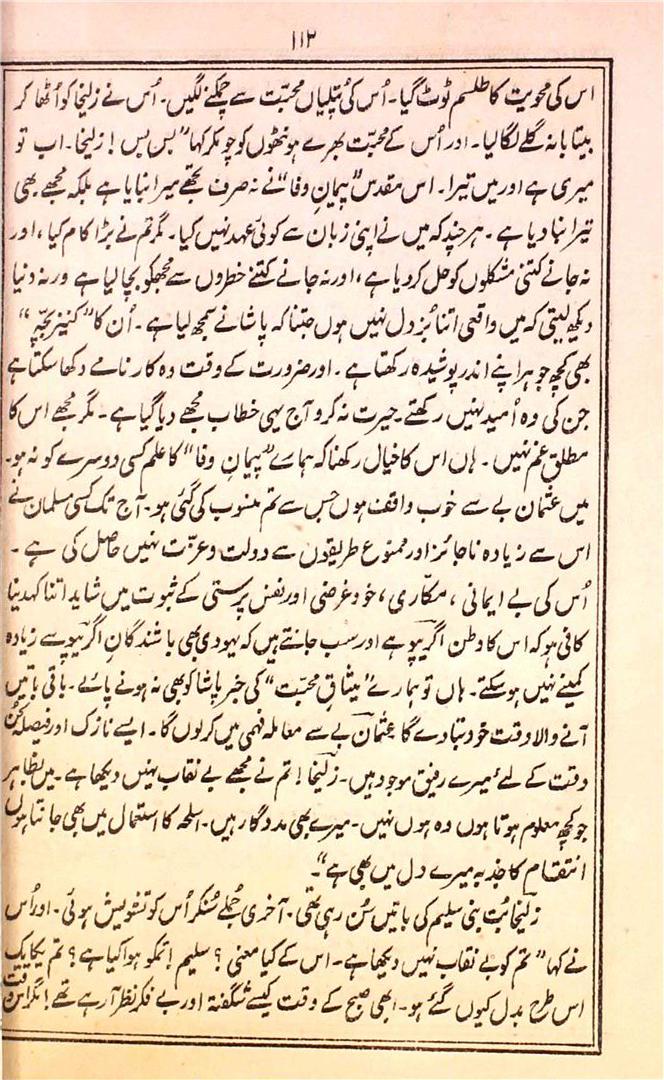 ۱۱۳
اس کی محویت کا طلسم ٹوٹ گیا۔ اُس کی پتلیاں محبّت سے چمکنے لگیں۔ اُس نے زلیخا کو اُٹھا کر
بیتابانہ گلے لگا لیا۔ اور اُس کے محبّت بھرے ہونٹھوں کو چوم کر کہا "بس بس ! زلیخا۔ اب تو
میری ہے اور میں تیرا۔ اس مقدس "پیمانِ وفا" نے نہ صرف تجھے میرا بنایا ہے بلکہ مجھے بھی
تیرا بنا دیا ہے۔ ہر چند کہ میں نے اپنی زبان سے کوئی عہد نہیں کیا۔ مگر تم نے بڑا کام کیا، اور
نہ جانے کتنی مشکلوں کو حل کر دیا ہے، اور نہ جانے کتنے خطروں سے مجھکو بچا لیا ہے ورنہ دنیا
دیکھ لیتی کہ میں واقعی اتنا بُزدل نہیں ہوں جتنا کہ پاشا نے سمجھ لیا ہے۔ اُن کا "کنیز بچّہ"
بھی کچھ جوہر اپنے اندر پوشیدہ رکھتا ہے۔ اور ضرورت کے وقت وہ کارنامے دکھا سکتا ہے
جن کی وہ اُمید نہیں رکھتے۔ حیرت نہ کرو آج یہی خطاب مجھے دیا گیا ہے۔ مگر مجھے اس کا
مطلق غم نہیں۔ ہاں اس کا خیال رکھنا کہ ہمارے "پیمانِ وفا" کا علم کسی دوسرے کو نہ ہو۔
میں عثمان بے سے خوب واقف ہوں جس سے تم منسوب کی گئی ہو۔ آج تک کسی مسلمان نے
اس سے زیادہ ناجائز اور ممنوع طریقوں سے دولت و عزّت نہیں حاصل کی ہے۔
اُس کی بے ایمانی، مکّاری، خود غرضی اور نفس پرستی کے ثبوت میں شاید اتنا کہدینا
کافی ہو کہ اس کا وطن اگریپو ہے اور سب جانتے ہیں کہ یہودی بھی باشندگانِ اگریپو سے زیادہ
کمینے نہیں ہو سکتے۔ ہاں تو ہمارے "میثاقِ محبّت" کی خبر پاشا کو بھی نہ ہونے پائے۔ باقی باتیں
آنے والا وقت خود بتا دے گا عثمان بے سے معاملہ فہمی میں کر لوں گا۔ ایسے نازک اور فیصلہ کُن
وقت کے لئے میرے رفیق موجود ہیں۔ زلیخا ! تم نے مجھے بے نقاب نہیں دیکھا ہے۔ میں بظاہر
جو کچھ معلوم ہوتا ہوں وہ ہوں نہیں۔ میرے بھی مددگار ہیں۔ اسلحہ کا استعمال میں بھی جانتا ہوں
انتقام کا جذبہ میرے دل میں بھی ہے"۔
زلیخا بُت بنی سلیم کی باتیں سُن رہی تھی۔ آخری جُملے سُنکر اُس کو تشویش ہوئی۔ اور اُس
نے کہا "تم کو بے نقاب نہیں دیکھا ہے۔ اس کے کیا معنی ؟ سلیم ! تمکو ہوا کیا ہے ؟ تم یکایک
اس طرح بدل کیوں گئے ہو۔ ابھی صبح کے وقت کیسے شگفتہ اور بے فکر نظر آ رہے تھے ! مگر اس وقت